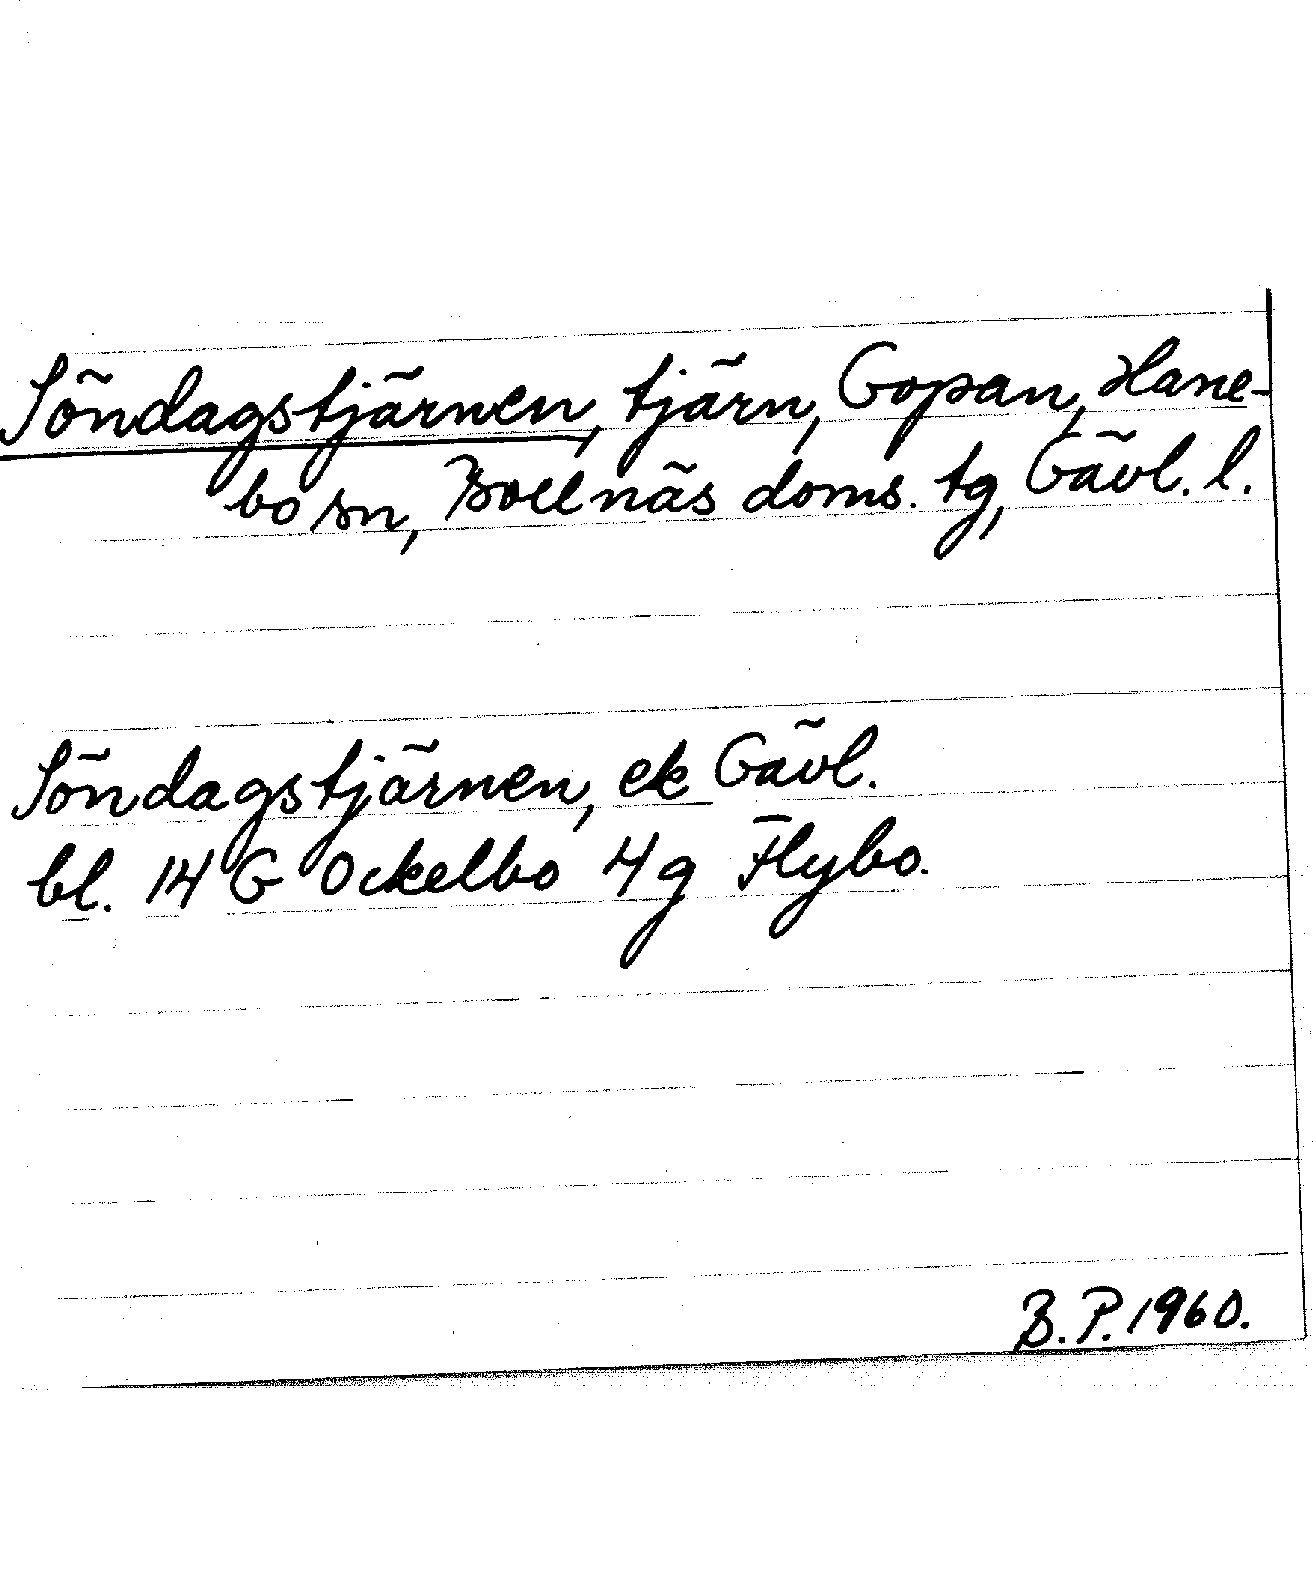 Söndagstjärnen, tjärn, Gopan, Hane-
bo sn, Bollnäs doms. tg, Gävl. l.
Söndagstjärnen, ek Gävl.
bl. 14 G Ockelbo 4g Flybo.
B.P. 1960.